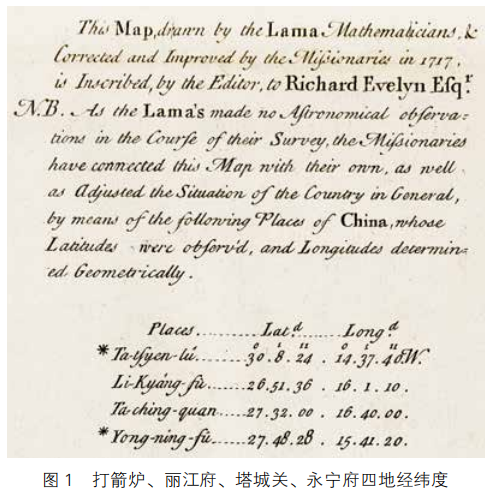 This Map, drawn by the Lama Mathematicians, &
Corrected and Improved by the Missionaries in 1717,
is Inscribed, by the Editor, to Richard Evelyn Esqr.
N.B. As the Lama's made no Astronomical observa=
tions in the Course of their Survey, the Missionaries
have connected this Map with their own, as well
as Adjusted the Situation of the Country in General,
by means of the following Places of China, whose
Latitudes were observ'd, and Longitudes determin=
ed Geometrically.
Places......... Latd....... Longd.
* Ta-tsyen-lú......30°. 8.' 24" . 14.° 37.' 40"W.
Li-Kyáng-fú......26. 51. 36 . 16. 1. 10.
Ta-ching-quan......27. 32. 00 . 16. 40. 00.
* Yong-ning-fú......27. 48. 28 . 15. 41. 20.
图 1 打箭炉、丽江府、塔城关、永宁府四地经纬度